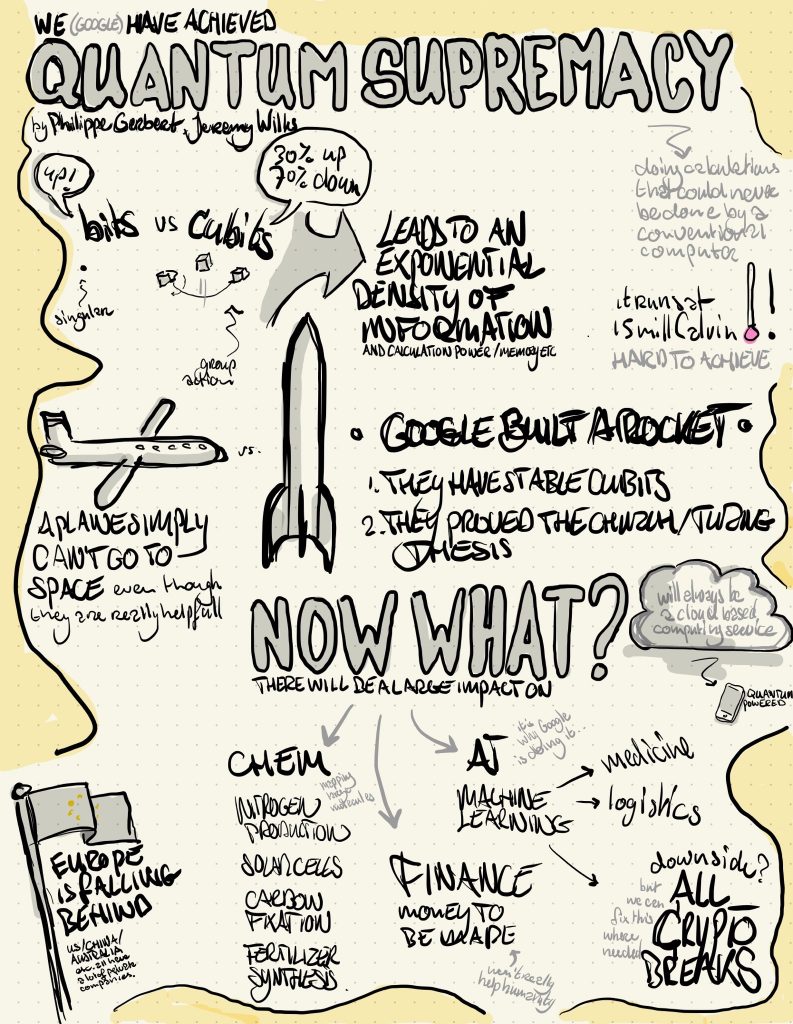 WE (GOOGLE) HAVE ACHIEVED
QUANTUM SUPREMACY
by Philippe Gerbert, Jeremy Wilks
up!
30% up
70% down
bits vs Cubits
singular
group
action
LEADS TO AN
EXPONENTIAL
DENSITY OF
INFORMATION
AND CALCULATION POWER / MEMORY ETC
doing calculations
that could never
be done by a
conventional
computer
it runs at
15 mill Calvin !
HARD TO ACHIEVE
vs.
A PLANE SIMPLY
CAN'T GO TO
SPACE even though
they are really helpfull
• GOOGLE BUILT A ROCKET •
1. THEY HAVE STABLE CUBITS
2. THEY PROVED THE CHURCH / TURING
THESIS
NOW WHAT?
THERE WILL BE A LARGE IMPACT ON
will always be
a cloud based
computing service
QUANTUM
POWERED
CHEM
mapping
molecules
NITROGEN
PRODUCTION
SOLAR CELLS
CARBON
FIXATION
FERTILIZER
SYNTHESIS
AI
it's
why Google
is doing it...
MACHINE
LEARNING
medicine
logistics
FINANCE
MONEY TO
BE MADE
won't really
help humanity
downside?
ALL
CRYPTO
BREAKS
but
we can
fix this
where
needed
EUROPE
IS FALLING
BEHIND
US/CHINA/
AUSTRALIA
etc. all have
companies.